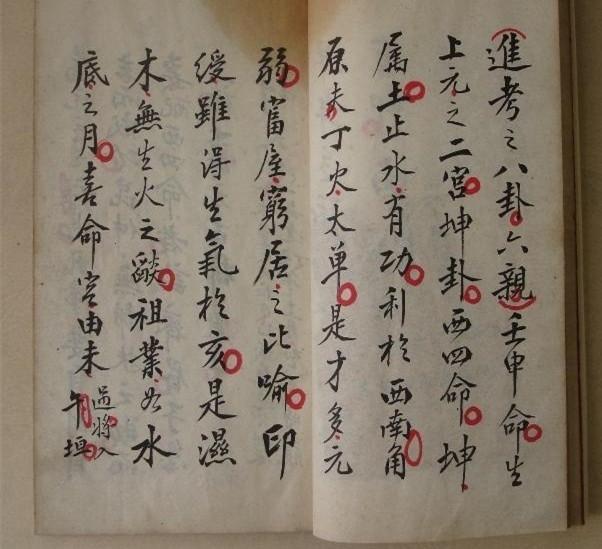 進考之八卦六親壬申命生
上元之二宮坤卦西四命坤
属土止水有功利於西南角
原丁火太单是才多元
弱富屋窮居之比喻印
綬雖得生氣於亥是濕
木無生火之燄祖業如水
底之月喜命宮由未過將入午垣